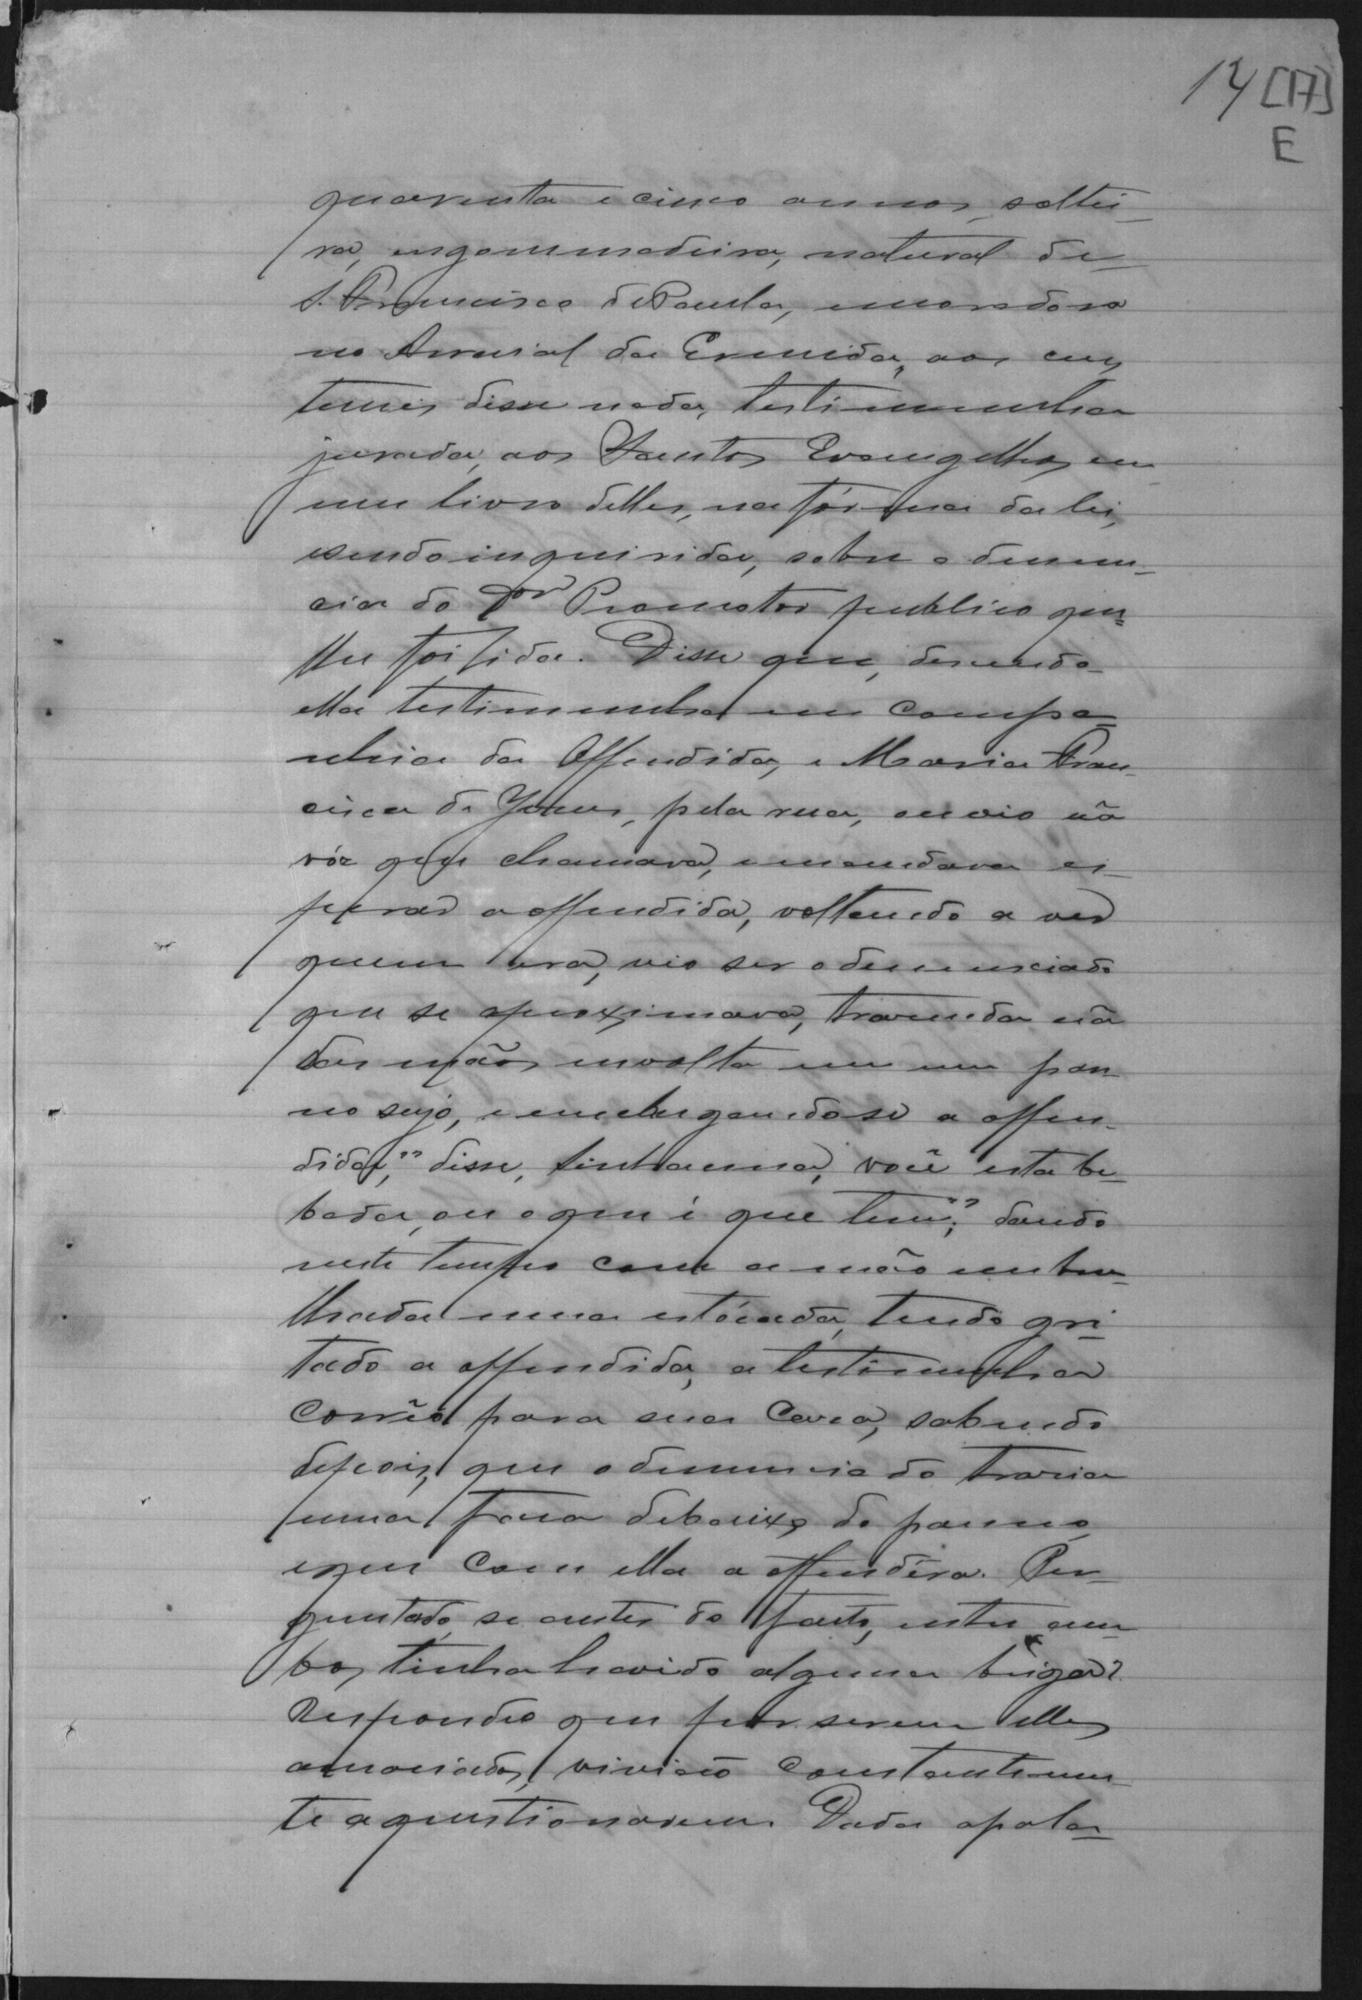 14 [17]
E
quarenta e cinco annos, soltei-
ra, engommadeira, natural de
S. Francisco de Paula, moradora
no Arraial da Ermida, aos cus
tumes disse nada, testimunha
jurada, aos Santos Evangelhos em
um livro delles, na fórma da lei,
esendo inquirida, sobre a denun-
cia do Dor Promotor publico que
lhe foi lida. Disse que, descendo
ella testimunha em compa-
nhia da Offendida, e Maria Fran-
cisca de Jesus, pela rua, ouvio uã
vóz que chamava, e mandava es-
perar a offendida, voltando a ver
quem era, vio ser o denunciado
que se aproximava, trasendo uã
das mãos involta em um pan-
no sujo, e enchegandose a offen-
dida," disse, Sinhanna, você esta be-
bada, ou o que é que tem;" dando
neste tempo com a mão embru-
lhada uma estócada, tendo gri-
tado a offendida, a testimunha
correo para sua Casa, sabendo
depois, que o denunciado trasia
uma faca debaixo do panno,
eque com ella a offendêra. Per-
guntado, se antes do facto, entre am-
bos tinha havido alguma briga?
Respondeo que por serem elles
amasiados, vivião constantemen-
te a questionarem. Dada apala-